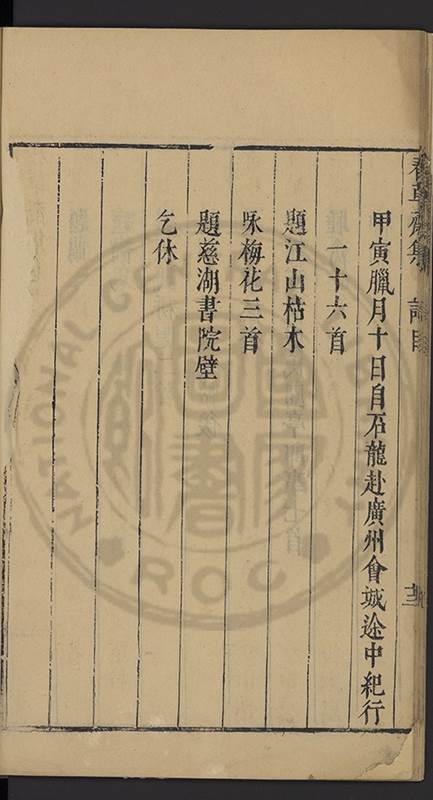 春草齋集 詩目
甲寅臘月十日自石龍赴廣州會城途中紀行
一十六首
題江山枯木
咏梅花三首
題慈湖書院壁
乞休